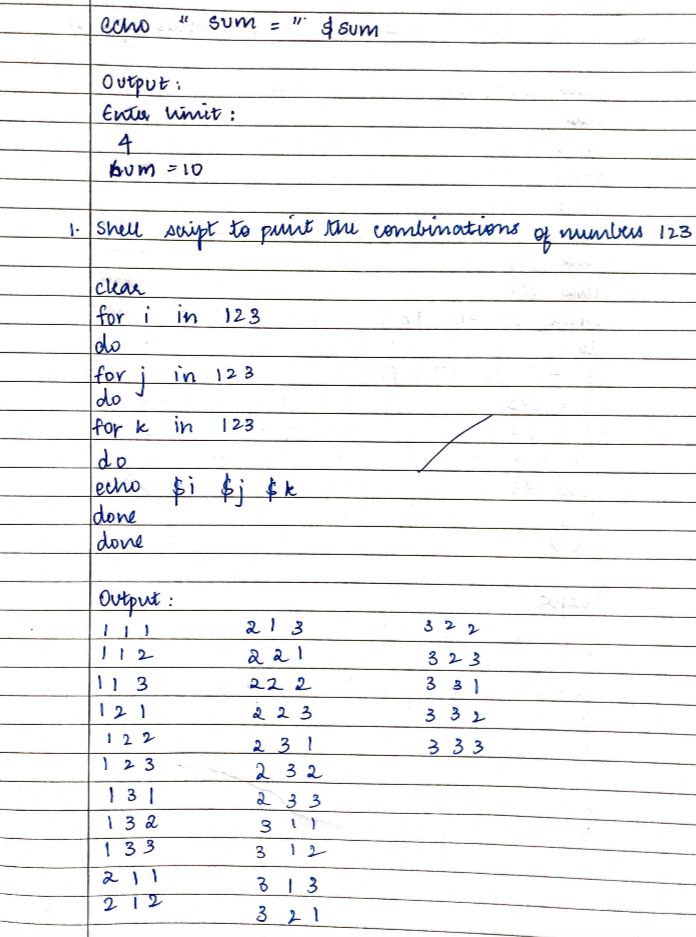 echo " sum = " $sum
Output :
Enter limit :
4
sum = 10
1. Shell script to print the combinations of numbers 123
clear
for i in 123
do
for j in 123
do
for k in 123
do
echo $i $j $k
done
done
Output :
1 1 1
1 1 2
1 1 3
1 2 1
1 2 2
1 2 3
1 3 1
1 3 2
1 3 3
2 1 1
2 1 2
2 1 3
2 2 1
2 2 2
2 2 3
2 3 1
2 3 2
2 3 3
3 1 1
3 1 2
3 1 3
3 2 1
3 2 2
3 2 3
3 3 1
3 3 2
3 3 3